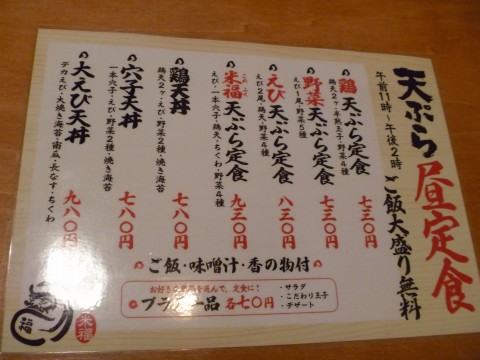 天ぷら昼定食
午前11時～午後2時 ご飯大盛り無料
鶏天ぷら定食
鶏天2ヶ・半熟玉子・野菜4種
七三〇円
野菜天ぷら定食
えび1尾・野菜5種
七三〇円
えび天ぷら定食
えび2尾・鶏天・野菜4種
八三〇円
米福天ぷら定食
こめふく
えび・一本穴子・鶏天・ちくわ・野菜4種
九三〇円
鶏天丼
鶏天2ヶ・えび・野菜2種・焼き海苔
七八〇円
穴子天丼
一本穴子・えび・野菜2種・焼き海苔
七八〇円
大えび天丼
デカえび・大焼き海苔・南瓜・長なす・ちくわ
九八〇円
ご飯・味噌汁・香の物付
お好きな単品を選んで、定食に!
プラス一品 各七〇円
・サラダ
・こだわり玉子
・デザート
福
米福